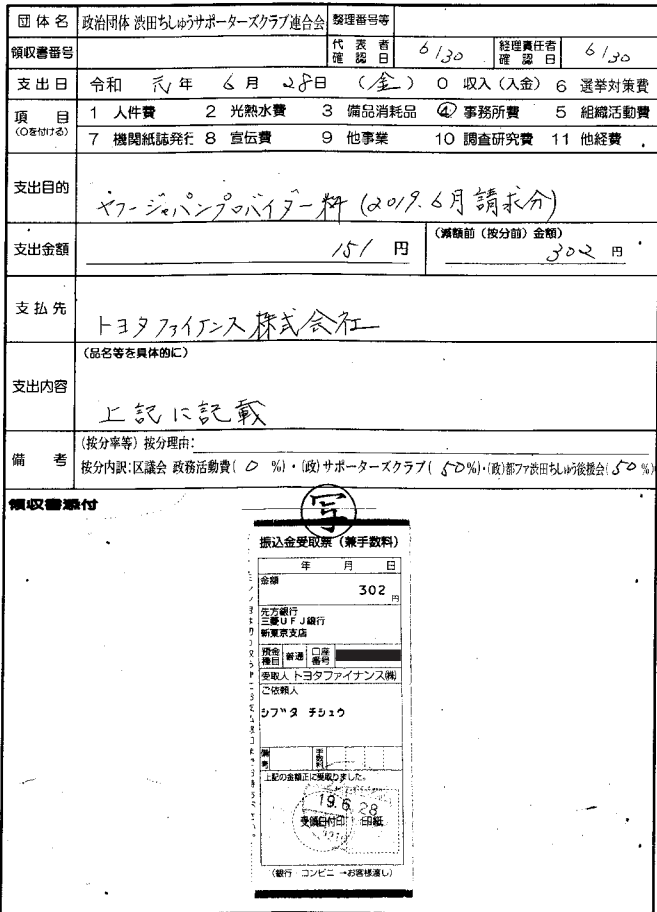 団体名 政治団体 渋田ちしゅうサポーターズクラブ連合会 整理番号等
領収書番号 代表者確認日 6/30 経理責任者確認日 6/30
支出日 令和 元年 6月 28日 (金) 0 収入(入金) 6 選挙対策費
項目 (○を付ける) 1 人件費 2 光熱水費 3 備品消耗品 ④ 事務所費 5 組織活動費
7 機関紙誌発行 8 宣伝費 9 他事業 10 調査研究費 11 他経費
支出目的 ヤフージャパンプロバイダー料(2019.6月請求分)
支出金額 151 円 (減額前(按分前)金額) 302 円
支払先 トヨタファイナンス株式会社
(品名等を具体的に)
支出内容 上記に記載
備考 (按分率等) 按分理由:
按分内訳:区議会 政務活動費( 0 %)・(政)サポーターズクラブ( 50%)・(政)都ファ渋田ちしゅう後援会( 50 %)
領収書添付
写
振込金受取票(兼手数料)
年 月 日
金額
302 円
先方銀行
三菱UFJ銀行
新東京支店
預金種目 普通 口座番号
受取人 トヨタファイナンス㈱
ご依頼人
シブタ チシュウ
備考 手数料
上記の金額正に受取りました。
19.6.28
受領日付印 印紙
(銀行・コンビニ→お客様渡し)